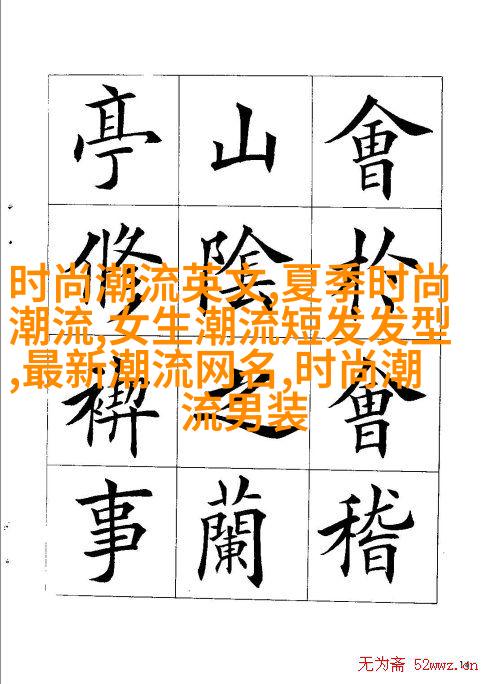 會於會稽
山陰之蘭
亭修禊事
时尚潮流英文,夏季时尚
潮流,女生潮流短发发型
,最新潮流网名,时尚潮
流男装
无为斋 52wwz.cn